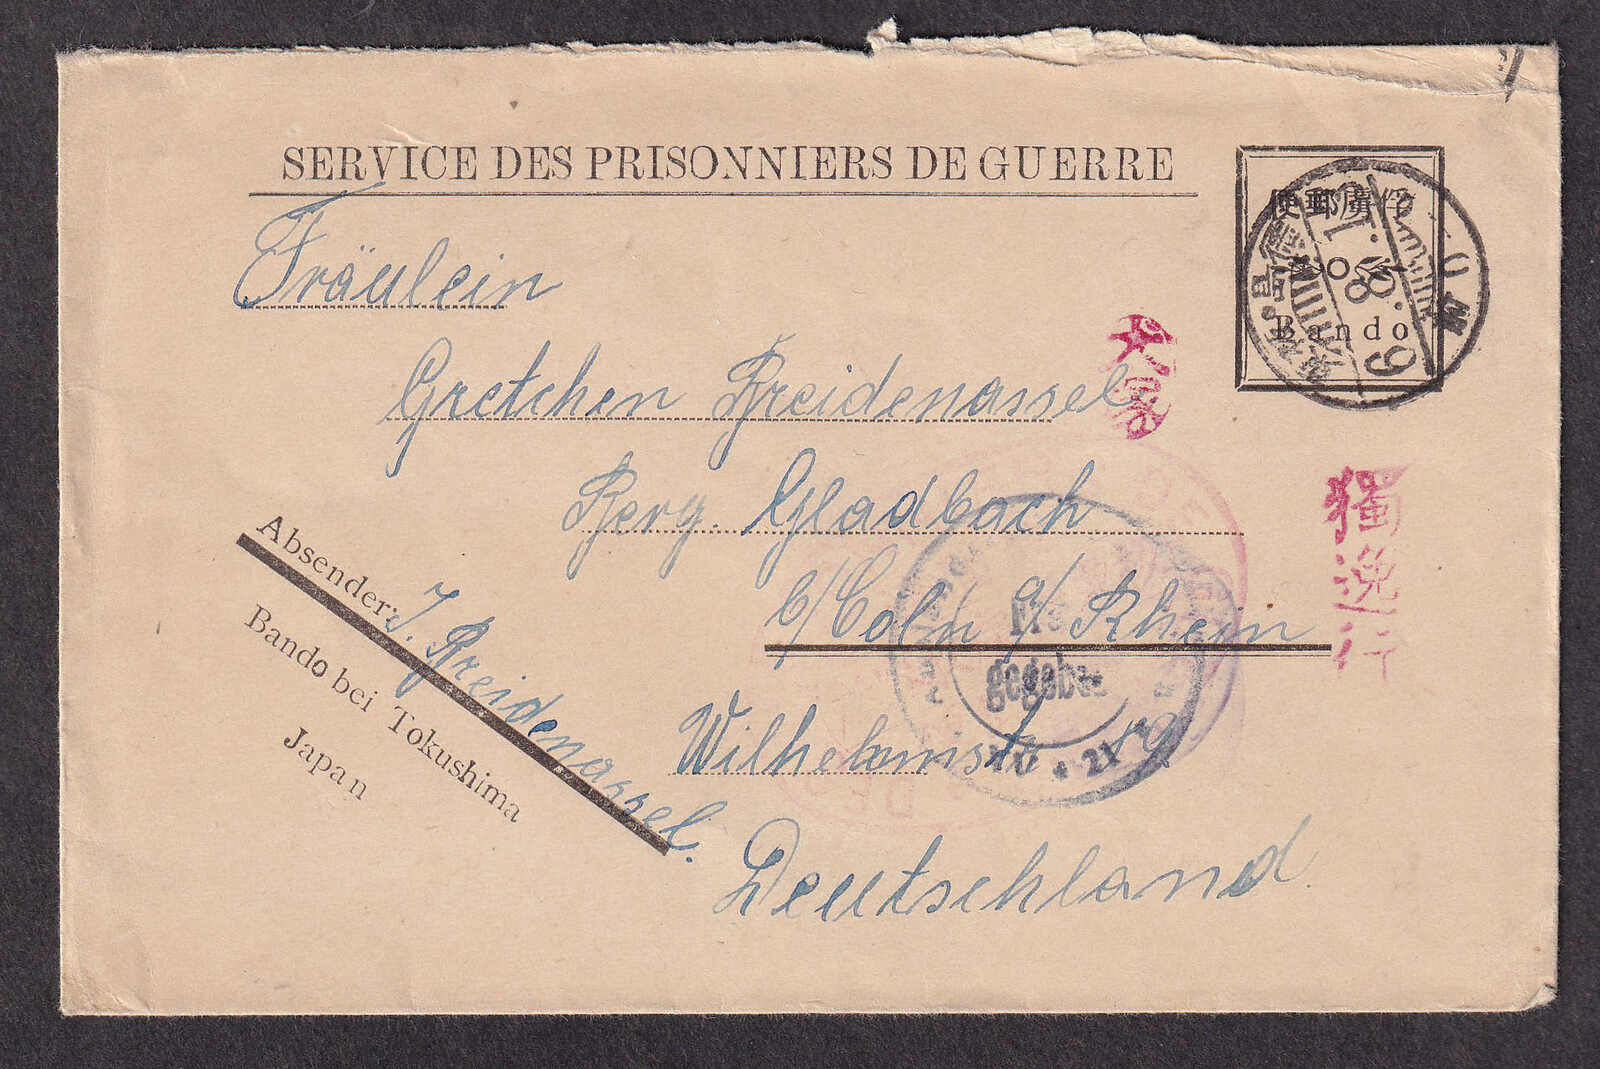 SERVICE DES PRISONNIERS DE GUERRE
俘虜郵便
Bando
Fräulein
Gretchen Breidenassel
Berg. Gladbach
b/Coln a/Rhein
Wilhelmstr 19
Deutschland.
獨逸行
Absender: J. Breidenassel.
Bando bei Tokushima
Japan
gegeben
21